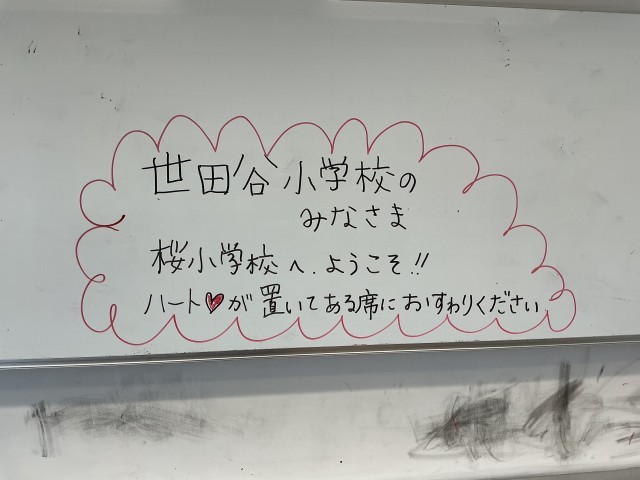 世田谷小学校の
みなさま
桜小学校へ.ようこそ!!
ハート♥が置いてある席におすわりください